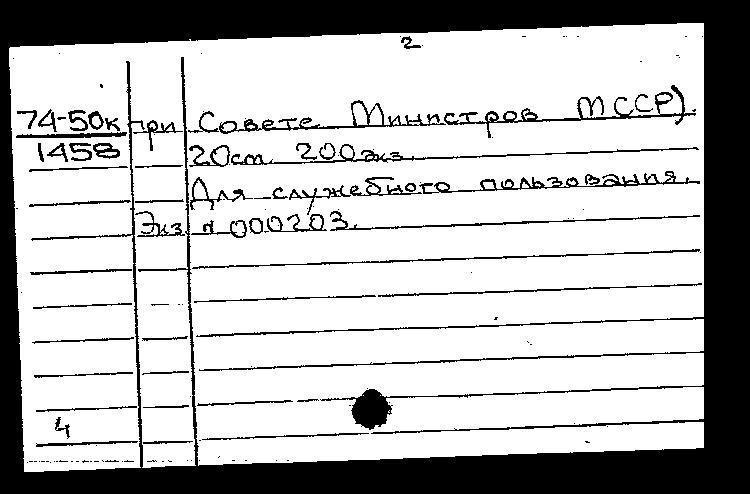 2
74-50к при Совете Министров МССР).
1458 20см. 200экз.
Для служебного пользования.
Экз № 000203.
4